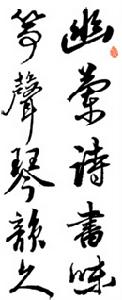 幽蘭詩書味
箏聲琴韻久